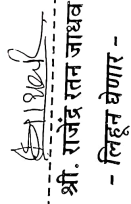 श्री. राजेंद्र रतन जाधव
- लिहून घेणार -